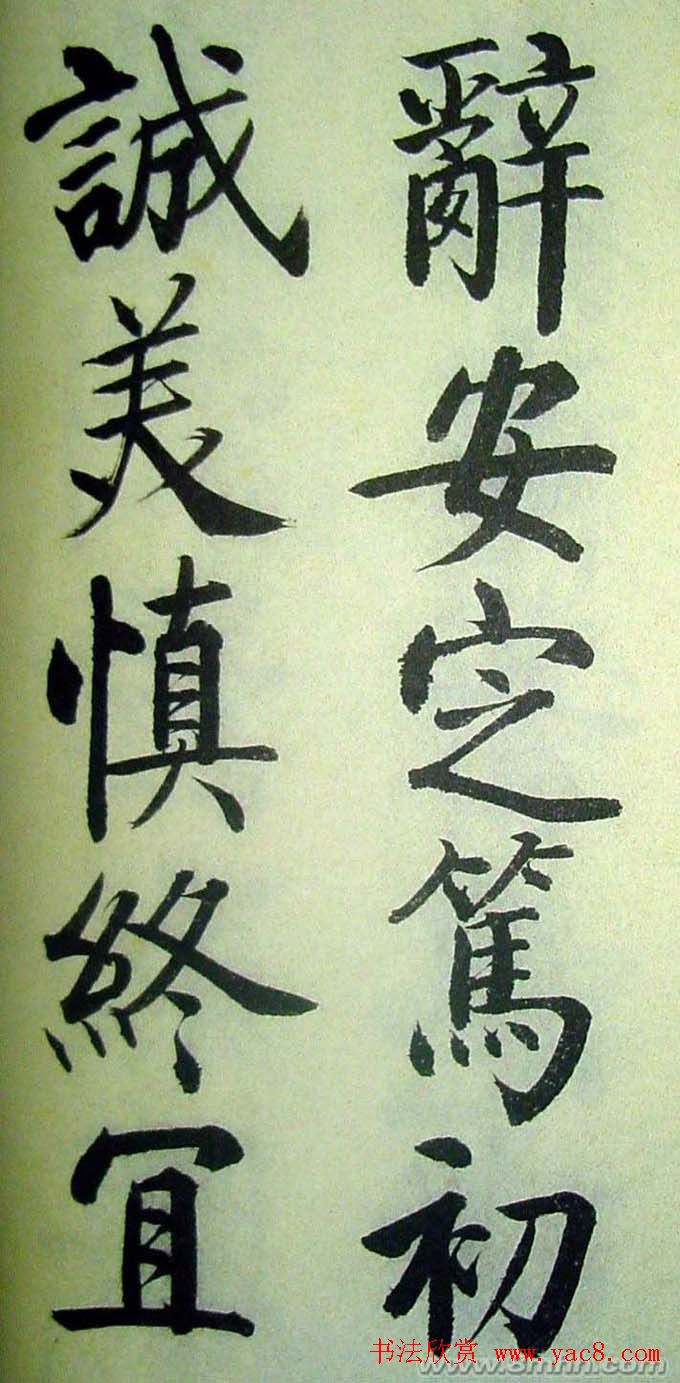 辭安定篤初
誠美慎終宜
书法欣赏 www.yac8.com